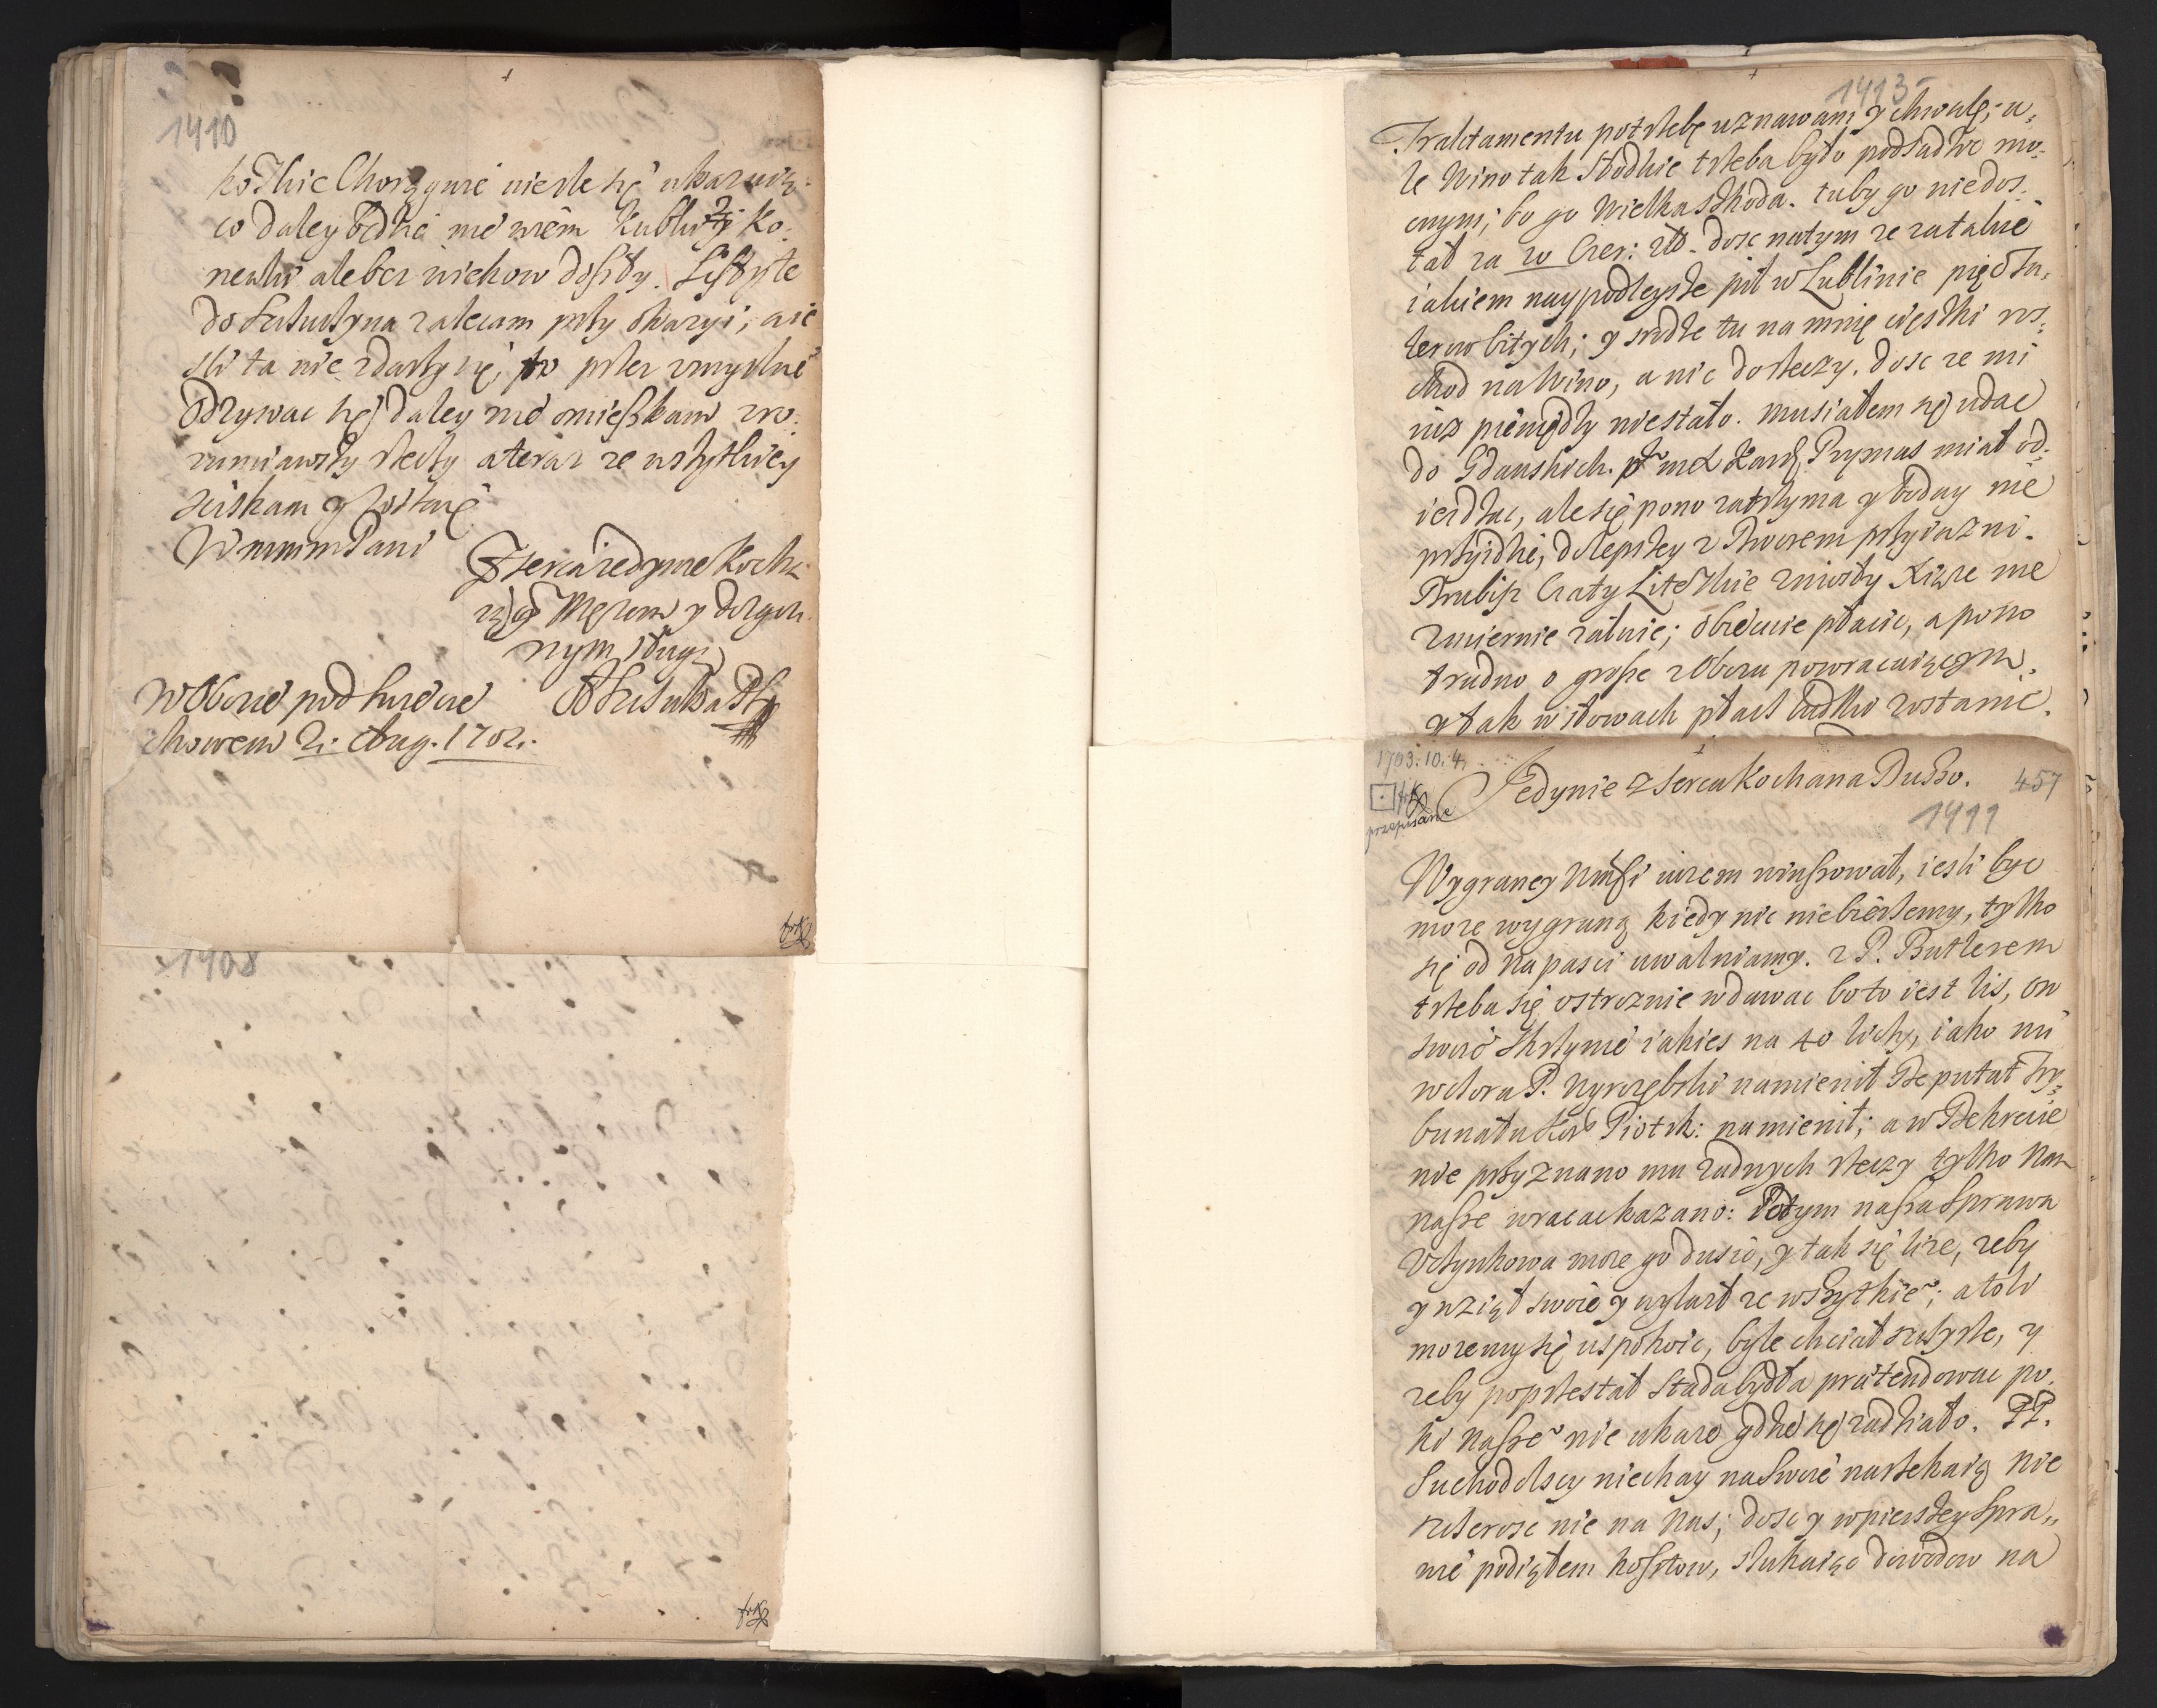 1410
kozkie Chorągwie niezle się ukazuią.
co daley będzie nie wiem Kubkw y Ko-
newki ale bez wiekow doszły. List yte
do Szczuczyna zalecam przy okazyi, a ie
sli ta nie zdarzy się, to przez umyslne
odzywac się daley nie omieszkam wro-
zumiawszy rzeczy a teraz ze wszytkiey
sciskam y zostaię
Wmmm Pani
Z serca iedynie kocha-
iącym Mężem y dozgon-
nym sługą
SSzczuka PK
W Obozie pod
chowem 2. Aug. 1702.
1408
1413
Traktamentu potrzebę uznawam y chwalę; a-
le Wino tak słodkie trzeba było podsadzic mo-
cnym; bo go wielka szkoda. tuby go niedos-
tał za 20 Czer: zło. dosc natym ze zatakie
iakiem naypodleysze pił w Lublinie pięc ta-
lerow bitych; y srodze tu na mnię cięszki ros-
chod na Wino, a nic do rzeczy. dosc ze mi
iuz pieniędzy niestało. musiałem się udac
do Gdanskich. Kard. Prymas miał od-
iezdzac, ale się pono zatrzyma y boday nie
przyidzie, do lepszey z Dworem przyiazni.
Trubisz Czaty Litewskie zniozły Xiąze nie
zmiernie załuie; obiecuie płacic, a pono
trudno o grosze z Obozu powracaiącym.
y tak w słowach płacz zostanie.
1703.10.4.
przepisane
Jedynie z serca Kochana Duszo.
457
1411
Wygraney Wmsci iuzem winszował, iesli byc
moze wygraną kiedy nic niebierzemy, tylko
się od napasci uwalniamy. z P. Butlerem
trzeba się ostroznie wdawac bo to iest lis, on
swoie skrzynie iakies na 40 liczy, iako mi
wczora P. Wyrozębski namienił Deputat Try-
bunału Kor Piotrk: namienił; a w Dekrecie
nie przyznano mu zadnych rzeczy tylko Nam
nasze wracac kazano: Potym nasza Sprawa
Uczynkowa moze go dusic, y tak się lize, zeby
y wziął swoie y wylazł ze wszytkie~; a toli
mozemy się uspokoic, byle chciał szczyrze, y
zeby poprzestał Stada bydła praetendowac po-
ki nasze~ nie ukaze gdzie się zadziało. PP.
Suchodolscy niechay na swoie narzekaią nie
szczerosc nie na Nas; dosc y w pierszey Spra-
wie podiąłem kosztow, szukaiąc dowodow na